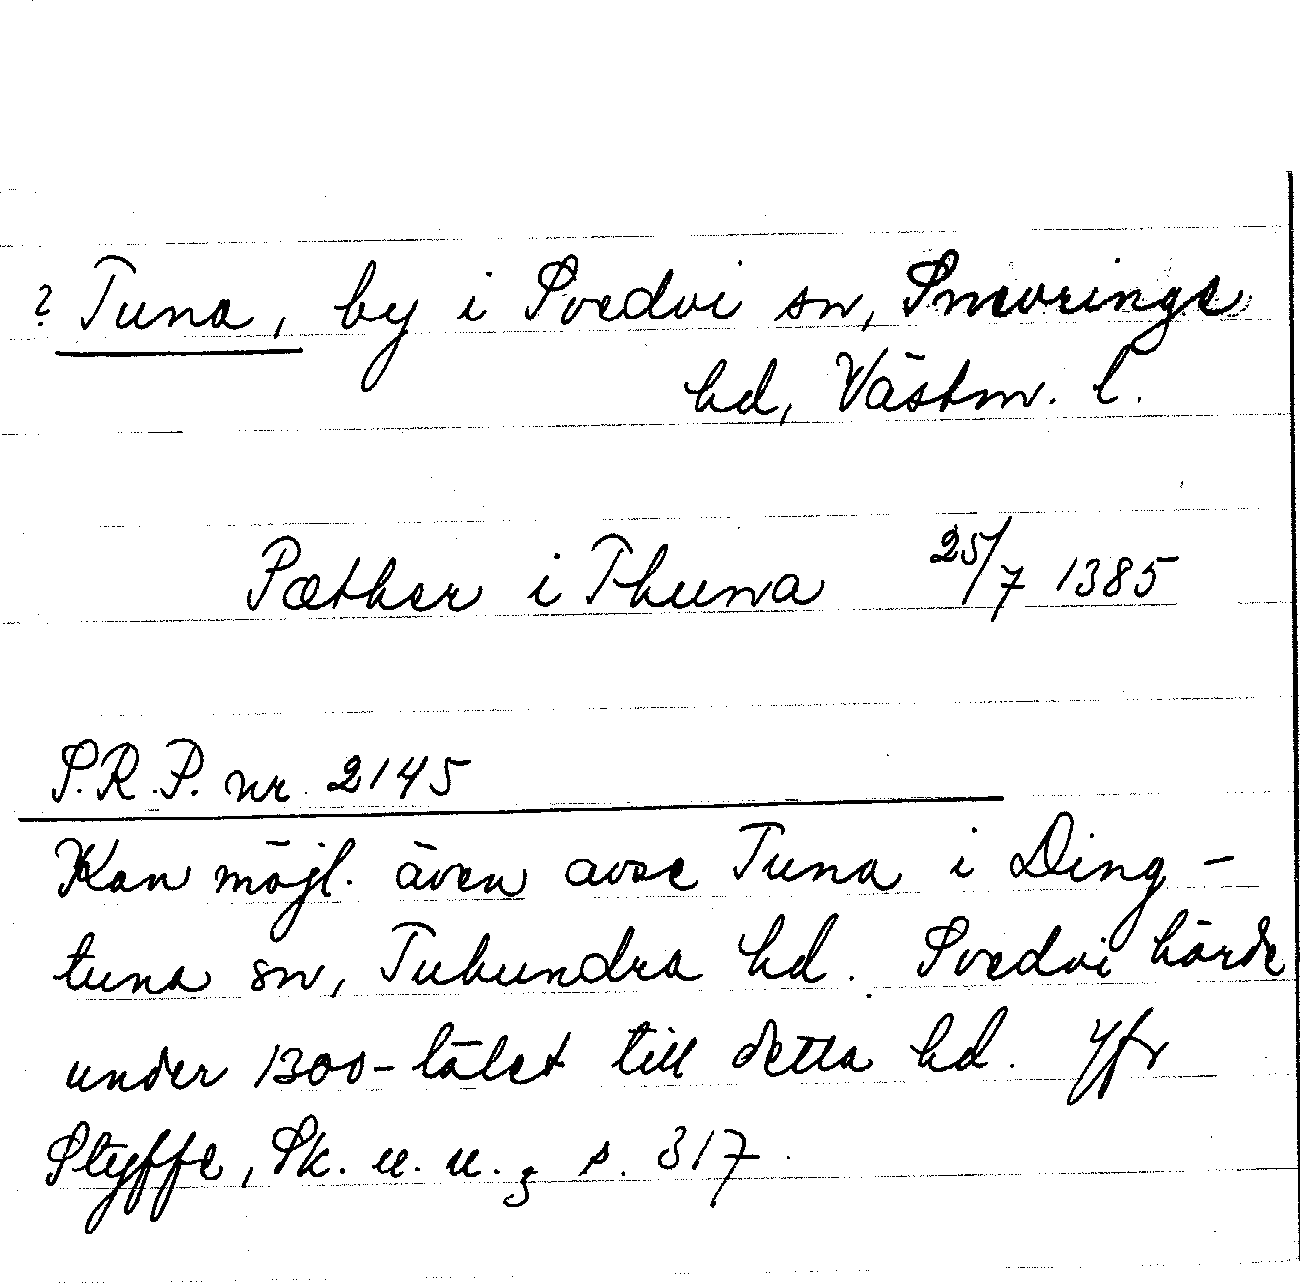 ? Tuna, by i Svedvi sn, Snevringe
hd, Västm. l.
Pæther i Thuna 25/7 1385
S.R.P. nr 2145
Kan möjl. även avse Tuna i Ding-
tuna sn, Tuhundra hd. Svedvi hörde
under 1300-talet till detta hd. Jfr
Styffe, Sk. u. u.3 s. 317.